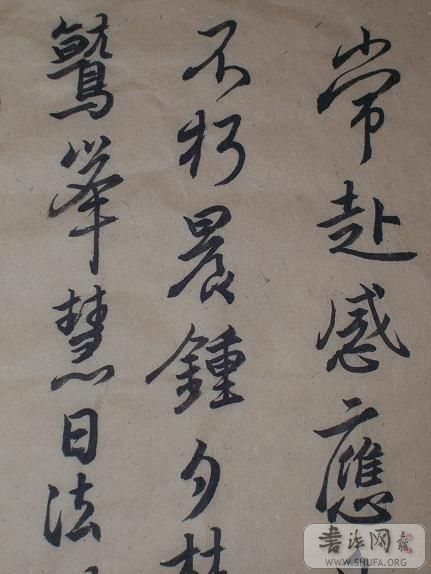 常赴感應
不朽晨鍾夕梵
鷲峯慧日法
書法网
WWW.SHUFA.ORG